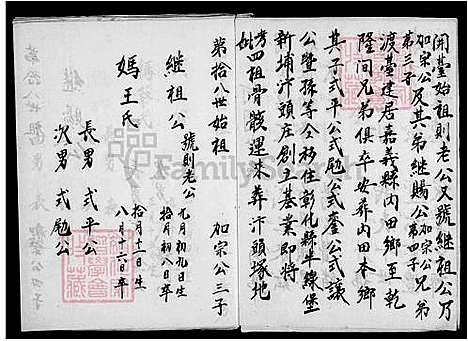 開臺始祖則老公又號繼祖公乃
加宗公第三子及其弟繼賜公加宗公第四子兄弟
渡臺建居嘉義縣內田鄉至乾
隆間兄弟俱卒安葬內田本鄉
其子式平公式勉公式奎公式議
公暨孫等仝移住彰化縣半線堡
新埔汴頭庄創立基業即將
考妣四祖骨骸運來葬汴頭塚地
第拾八世始祖 加宗公三子
繼祖公 號則老公 九月初九日生 拾月初八日卒
媽王氏 拾月十一日生 八月十六日卒
長男 式平公
次男 式勉公